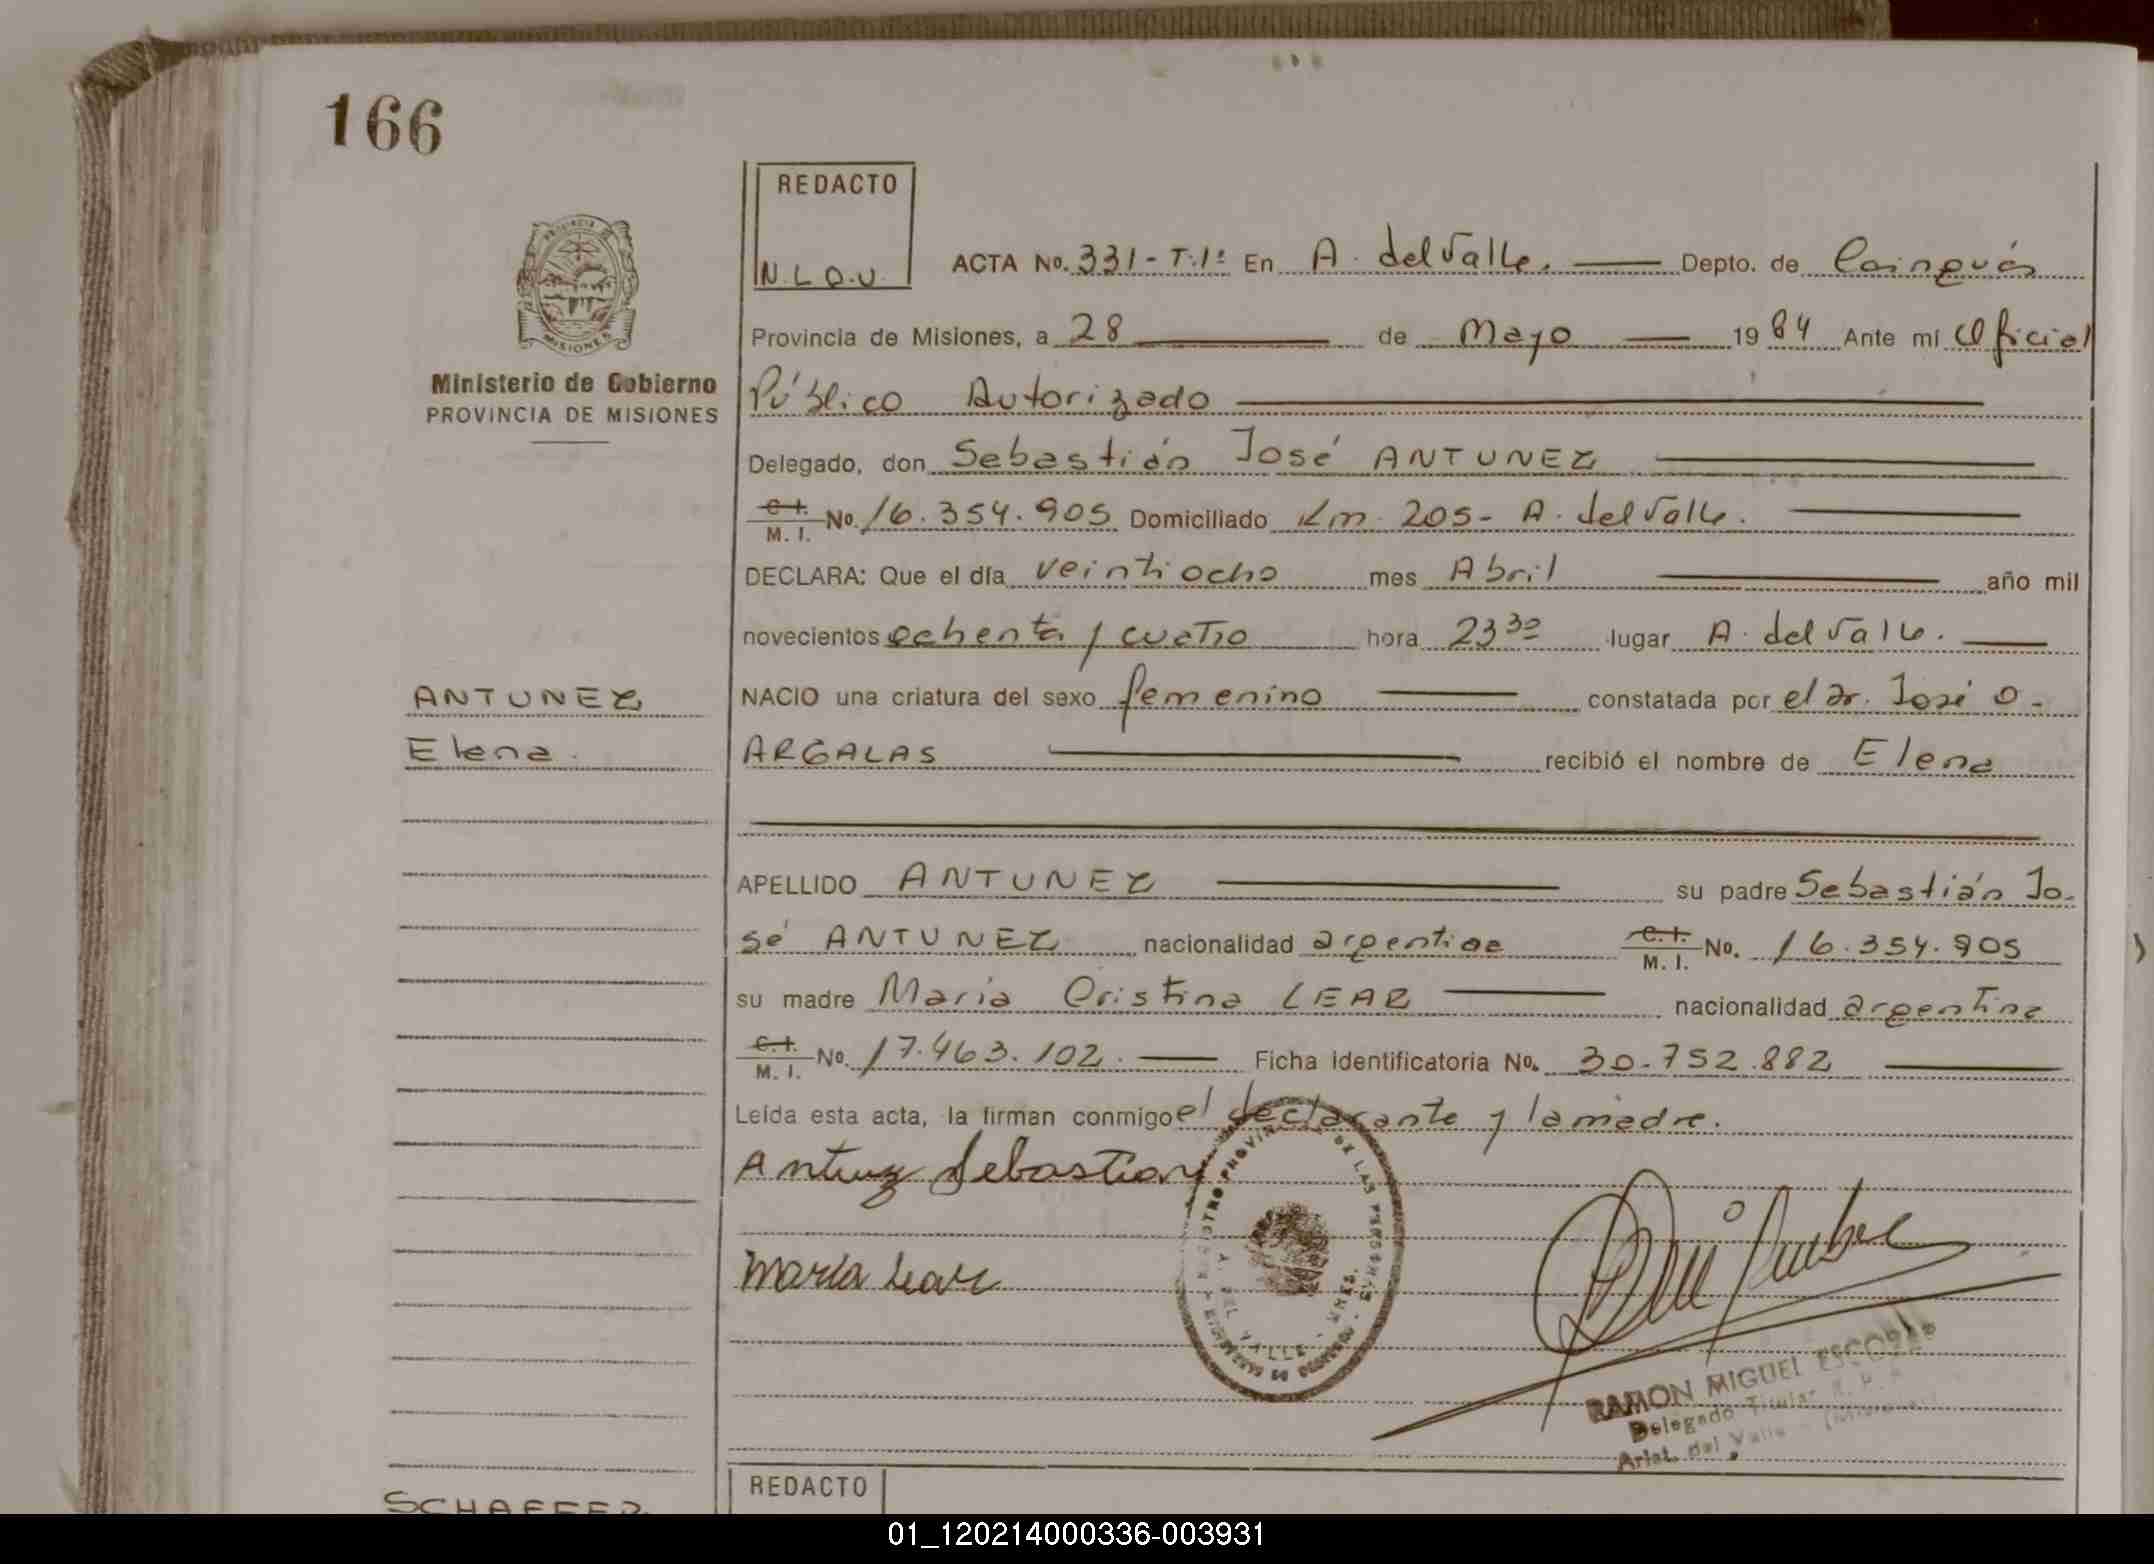 166
REDACTO
N.L.Q.U.
ACTA No. 331-T.1º En A. del Valle. Depto. de Cainguás
Provincia de Misiones, a 28 de Mayo 1984 Ante mí Oficial
Ministerio de Gobierno
PROVINCIA DE MISIONES
Público Autorizado
Delegado, don Sebastián José ANTUNEZ
C.I. M.I. No. 16.354.905 Domiciliado Km. 205- A. del Valle.
DECLARA: Que el día veintiocho mes Abril año mil
novecientos ochenta y cuatro hora 23³⁰ lugar A. del Valle.
ANTUNEZ
NACIO una criatura del sexo femenino constatada por el Dr. José O.
Elena.
ARGALAS recibió el nombre de Elena
APELLIDO ANTUNEZ su padre Sebastián Jo-
sé ANTUNEZ nacionalidad argentina C.I. M.I. No. 16.354.905
su madre María Cristina LEAR nacionalidad argentina
C.I. M.I. No. 17.463.102. Ficha identificatoria No. 30.752.882
Leída esta acta, la firman conmigo el declarante y la madre.
Antunez Sebastian
Maria Lear
RAMON MIGUEL ESCOBAR
Delegado Titular R. P.
Arist. del Valle - (Misiones)
REDACTO
SCHAEFER
01_120214000336-003931